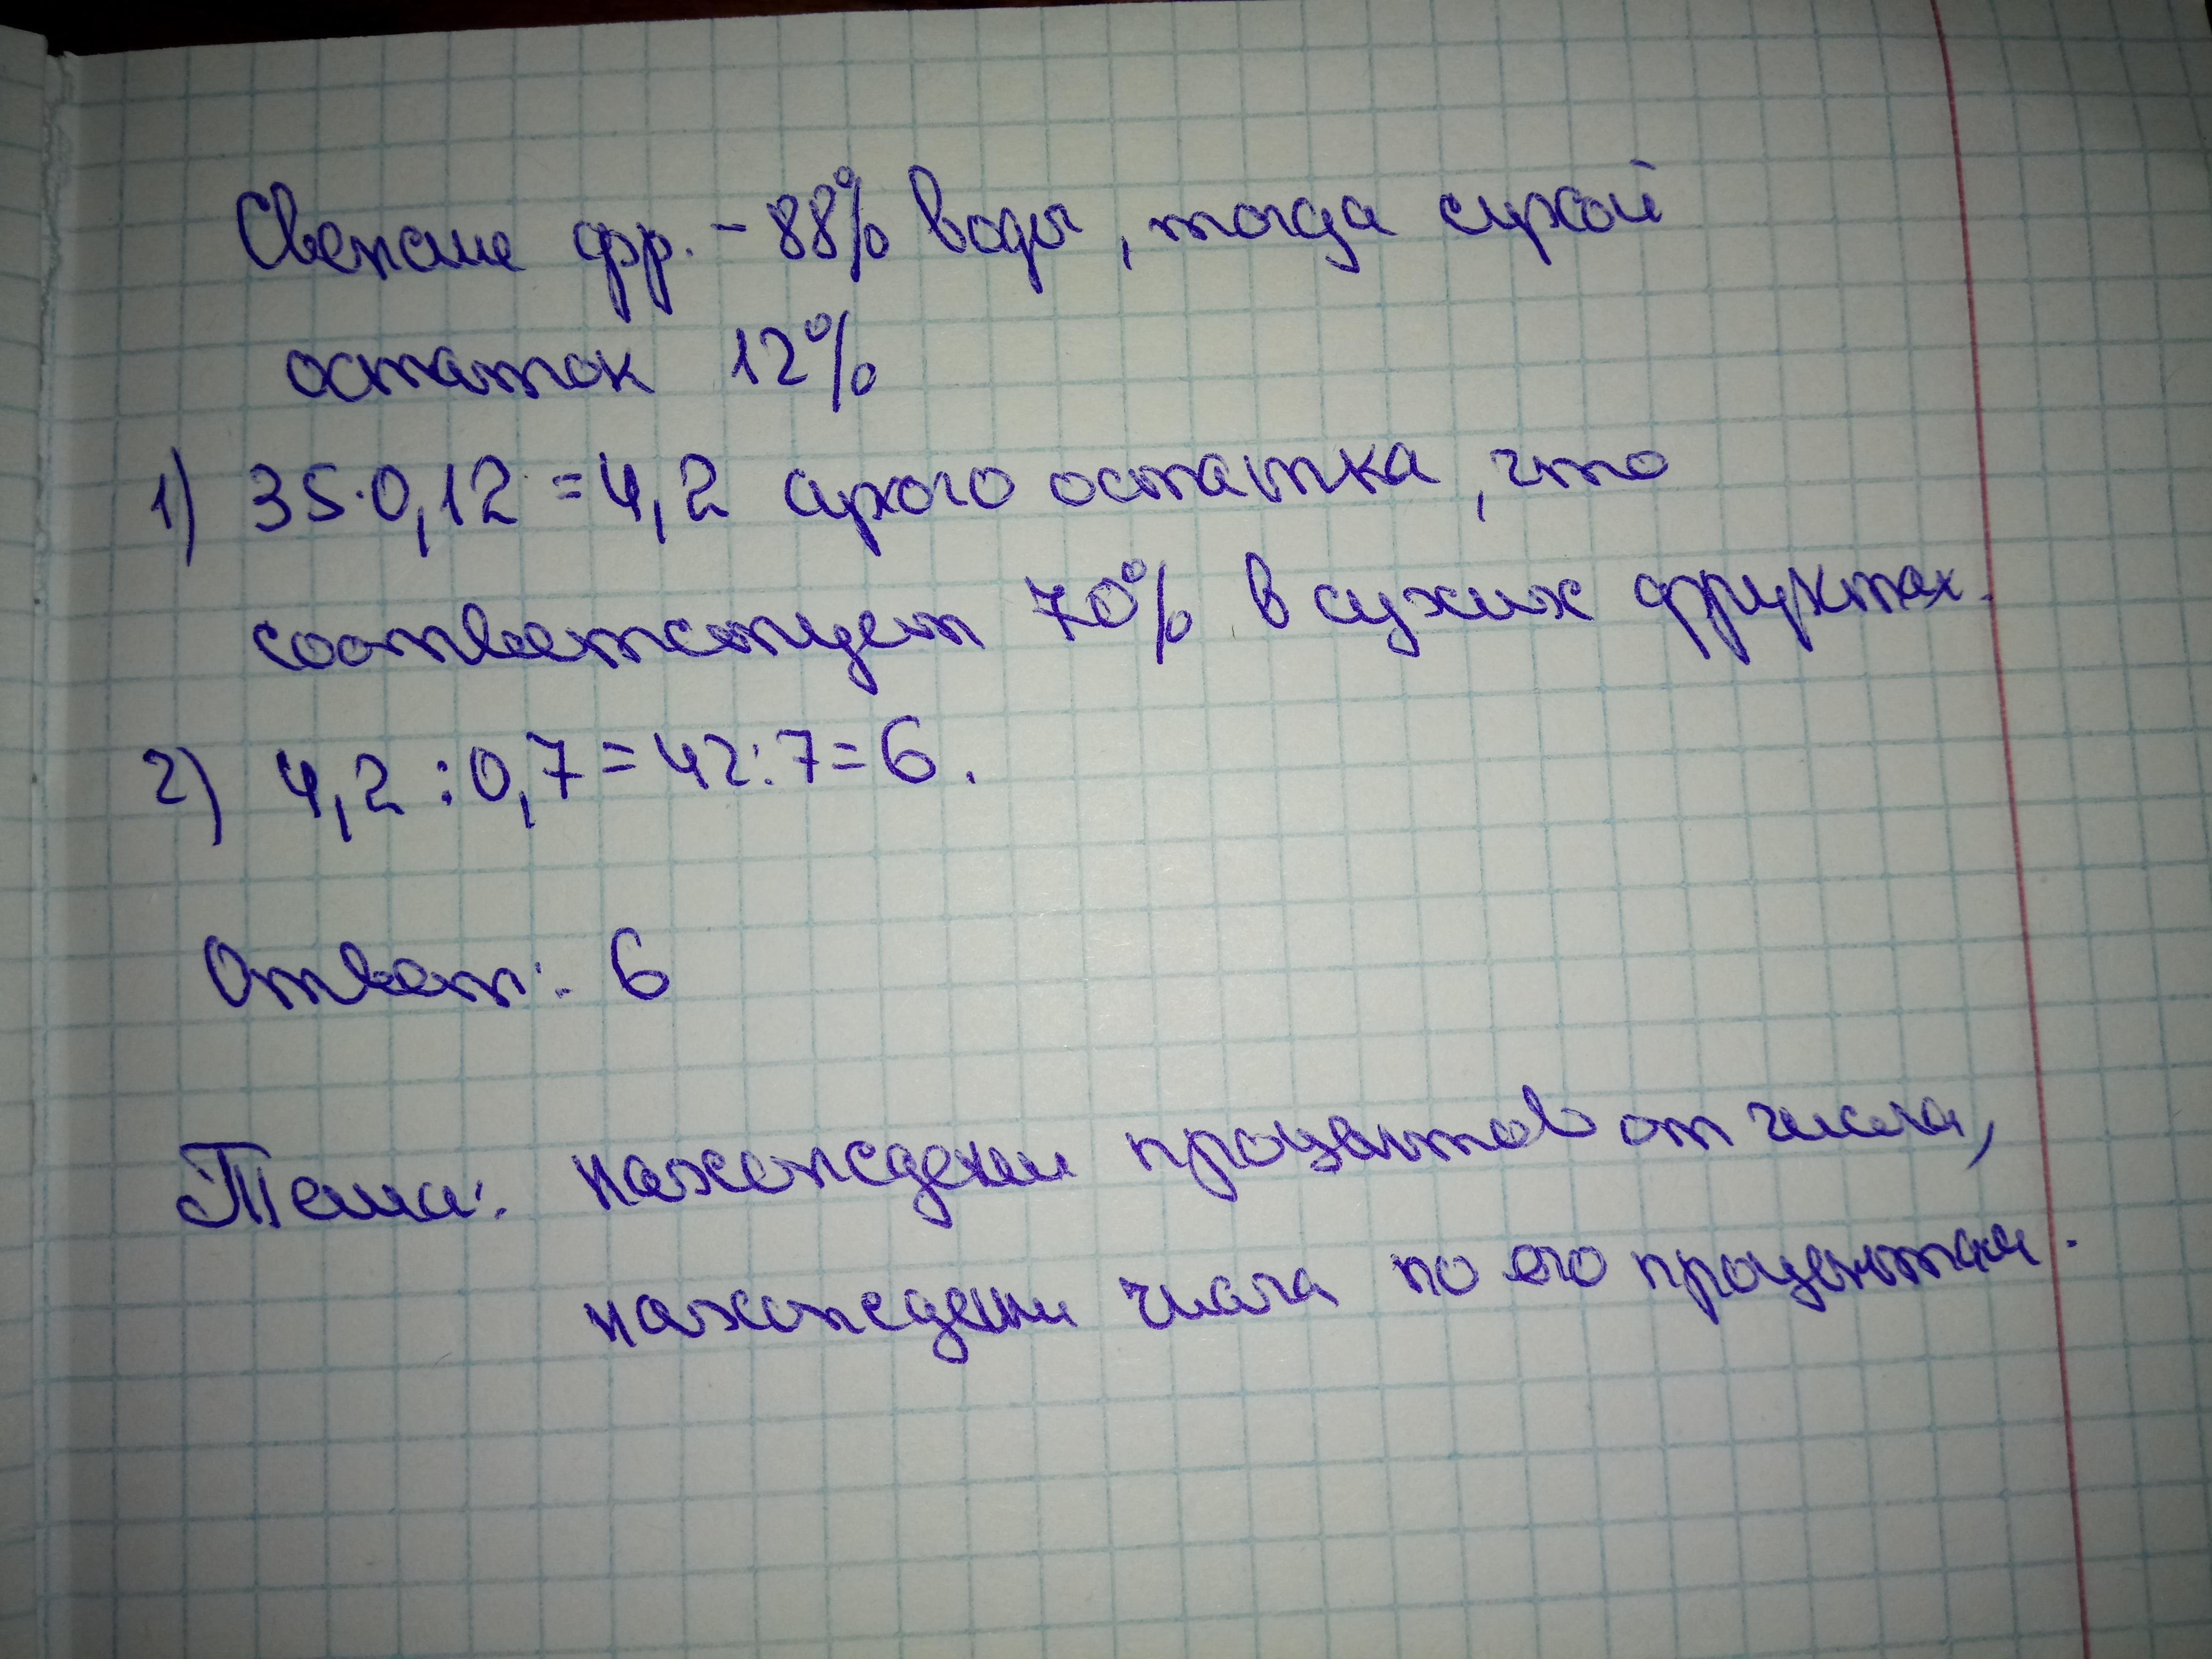 Свежие фр. - 88% воды, тогда сухой
остаток 12%
1) 35·0,12 = 4,2 сухого остатка, что
соответствует 70% в сухих фруктах.
2) 4,2 : 0,7 = 42 : 7 = 6.
Ответ: 6
Тема: нахождение процентов от числа,
нахождение числа по его процентам.